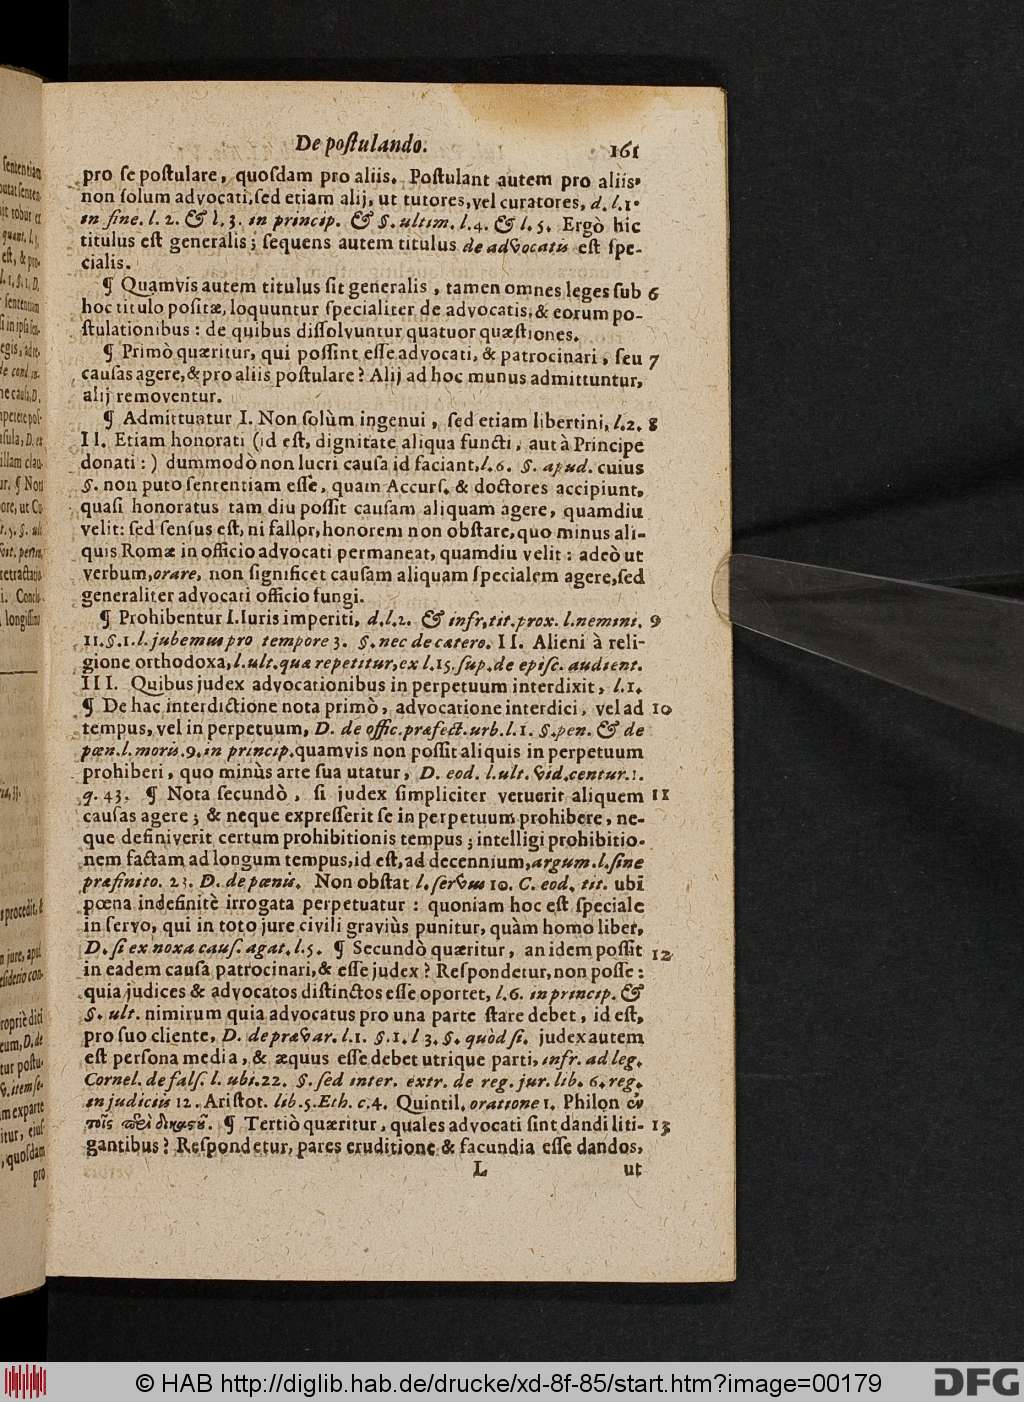 De poſtulando. 161
pro ſe poſtulare, quoſdam pro aliis. Poſtulant autem pro aliis,
non ſolum advocati, ſed etiam alij, ut tutores, vel curatores, d. l. 1.
in fine. l. 2. & l. 3. in princip. & §. ultim. l. 4. & l. 5. Ergò hic
titulus eſt generalis; ſequens autem titulus de advocatis eſt ſpe-
cialis.
¶ Quamvis autem titulus ſit generalis, tamen omnes leges ſub 6
hoc titulo poſitæ, loquuntur ſpecialiter de advocatis, & eorum po-
ſtulationibus: de quibus diſſolvuntur quatuor quæſtiones.
¶ Primò quæritur, qui poſſint eſſe advocati, & patrocinari, ſeu 7
cauſas agere, & pro aliis poſtulare? Alij ad hoc munus admittuntur,
alij removentur.
¶ Admittuntur I. Non ſolùm ingenui, ſed etiam libertini, l. 2. 8
II. Etiam honorati (id eſt, dignitate aliqua functi, aut à Principe
donati:) dummodò non lucri cauſa id faciant, l. 6. §. apud. cuius
§. non puto ſententiam eſſe, quam Accurſ. & doctores accipiunt,
quaſi honoratus tam diu poſſit cauſam aliquam agere, quamdiu
velit: ſed ſenſus eſt, ni fallor, honorem non obſtare, quo minus ali-
quis Romæ in officio advocati permaneat, quamdiu velit: adeò ut
verbum, orare, non ſignificet cauſam aliquam ſpecialem agere, ſed
generaliter advocati officio fungi.
¶ Prohibentur I. Iuris imperiti, d. l. 2. & infr, tit. prox. l. nemini. 9
11. §. 1. l. jubemus pro tempore 3. §. nec de cætero. II. Alieni à reli-
gione orthodoxa, l. ult. quæ repetitur, ex l. 15. ſup. de epiſc. audient.
III. Quibus judex advocationibus in perpetuum interdixit, l. 1.
¶ De hac interdictione nota primò, advocatione interdici, vel ad 10
tempus, vel in perpetuum, D. de offic. præfect. urb. l. 1. §. pen. & de
pœn. l. moris. 9. in princip. quamvis non poſſit aliquis in perpetuum
prohiberi, quo minùs arte ſua utatur, D. eod. l. ult. vid. centur. 1.
q. 43. ¶ Nota ſecundò, ſi judex ſimpliciter vetuerit aliquem 11
cauſas agere; & neque expreſſerit ſe in perpetuum prohibere, ne-
que definiverit certum prohibitionis tempus; intelligi prohibitio-
nem factam ad longum tempus, id eſt, ad decennium, argum. l. ſine
præfinito. 23. D. de pœnis. Non obſtat l. ſervus 10. C. eod. tit. ubi
pœna indefinitè irrogata perpetuatur: quoniam hoc eſt ſpeciale
in ſervo, qui in toto jure civili graviùs punitur, quàm homo liber,
D. ſi ex noxa cauſ. agat. l. 5. ¶ Secundò quæritur, an idem poſſit 12
in eadem cauſa patrocinari, & eſſe judex? Reſpondetur, non poſſe:
quia judices & advocatos diſtinctos eſſe oportet, l. 6. in princip. &
§. ult. nimirum quia advocatus pro una parte ſtare debet, id eſt,
pro ſuo cliente, D. de prævar. l. 1. §. 1. l 3. §. quòd ſi. judex autem
eſt perſona media, & æquus eſſe debet utrique parti, infr. ad leg.
Cornel. de falſ. l. ubi. 22. §. ſed inter. extr. de reg. jur. lib. 6. reg.
in judiciis 12. Ariſtot. lib. 5. Eth. c. 4. Quintil. oratione 1. Philon ἐν
τοῖς περὶ δικαστοῦ. ¶ Tertiò quæritur, quales advocati ſint dandi liti- 13
gantibus? Reſpondetur, pares eruditione & facundia eſſe dandos,
L ut
© HAB http://diglib.hab.de/drucke/xd-8f-85/start.htm?image=00179
DFG